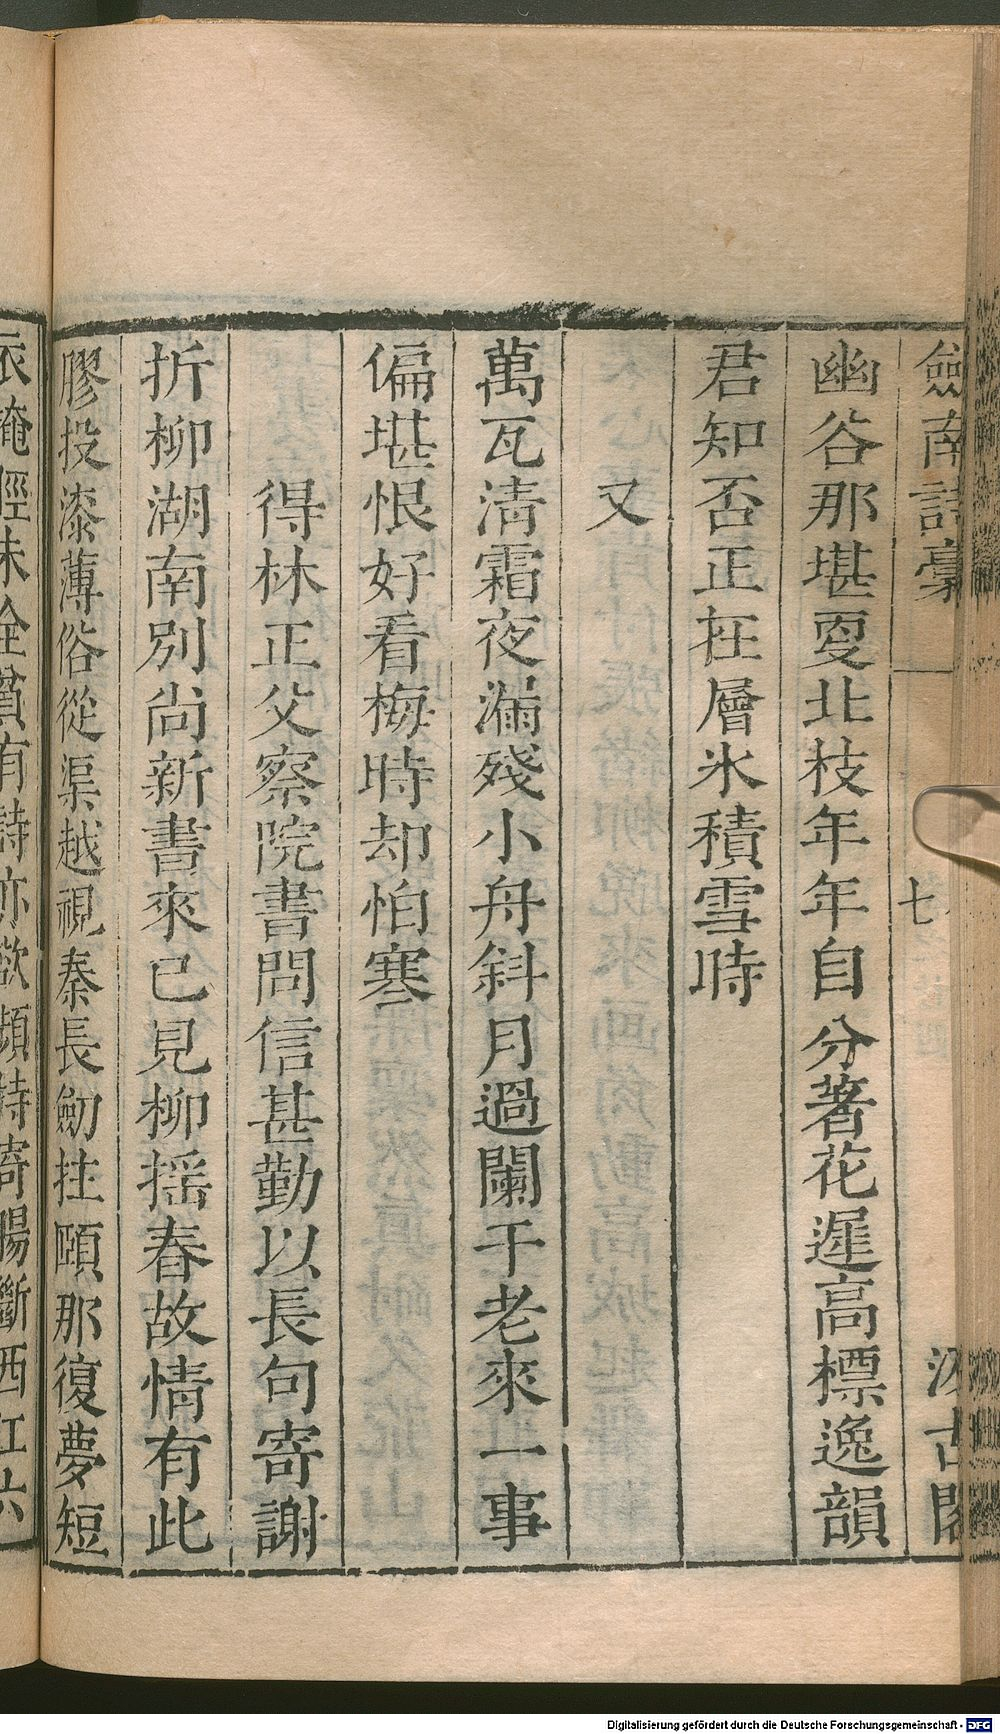 劍南詩稾
七
汲古閣
幽谷那堪更北枝年年自分著花遲高標逸韻
君知否正在層氷積雪時
又
萬瓦清霜夜漏殘小舟斜月過闌干老來一事
偏堪恨好看梅時却怕寒
得林正父察院書問信甚勤以長句寄謝
折柳湖南別尚新書來已見柳揺春故情有此
膠投漆薄俗從渠越視秦長劒拄頤那復夢短
衣掩脛未全貧有詩亦欲頻時寄腸斷西江六
Digitalisierung gefördert durch die Deutsche Forschungsgemeinschaft - DFG